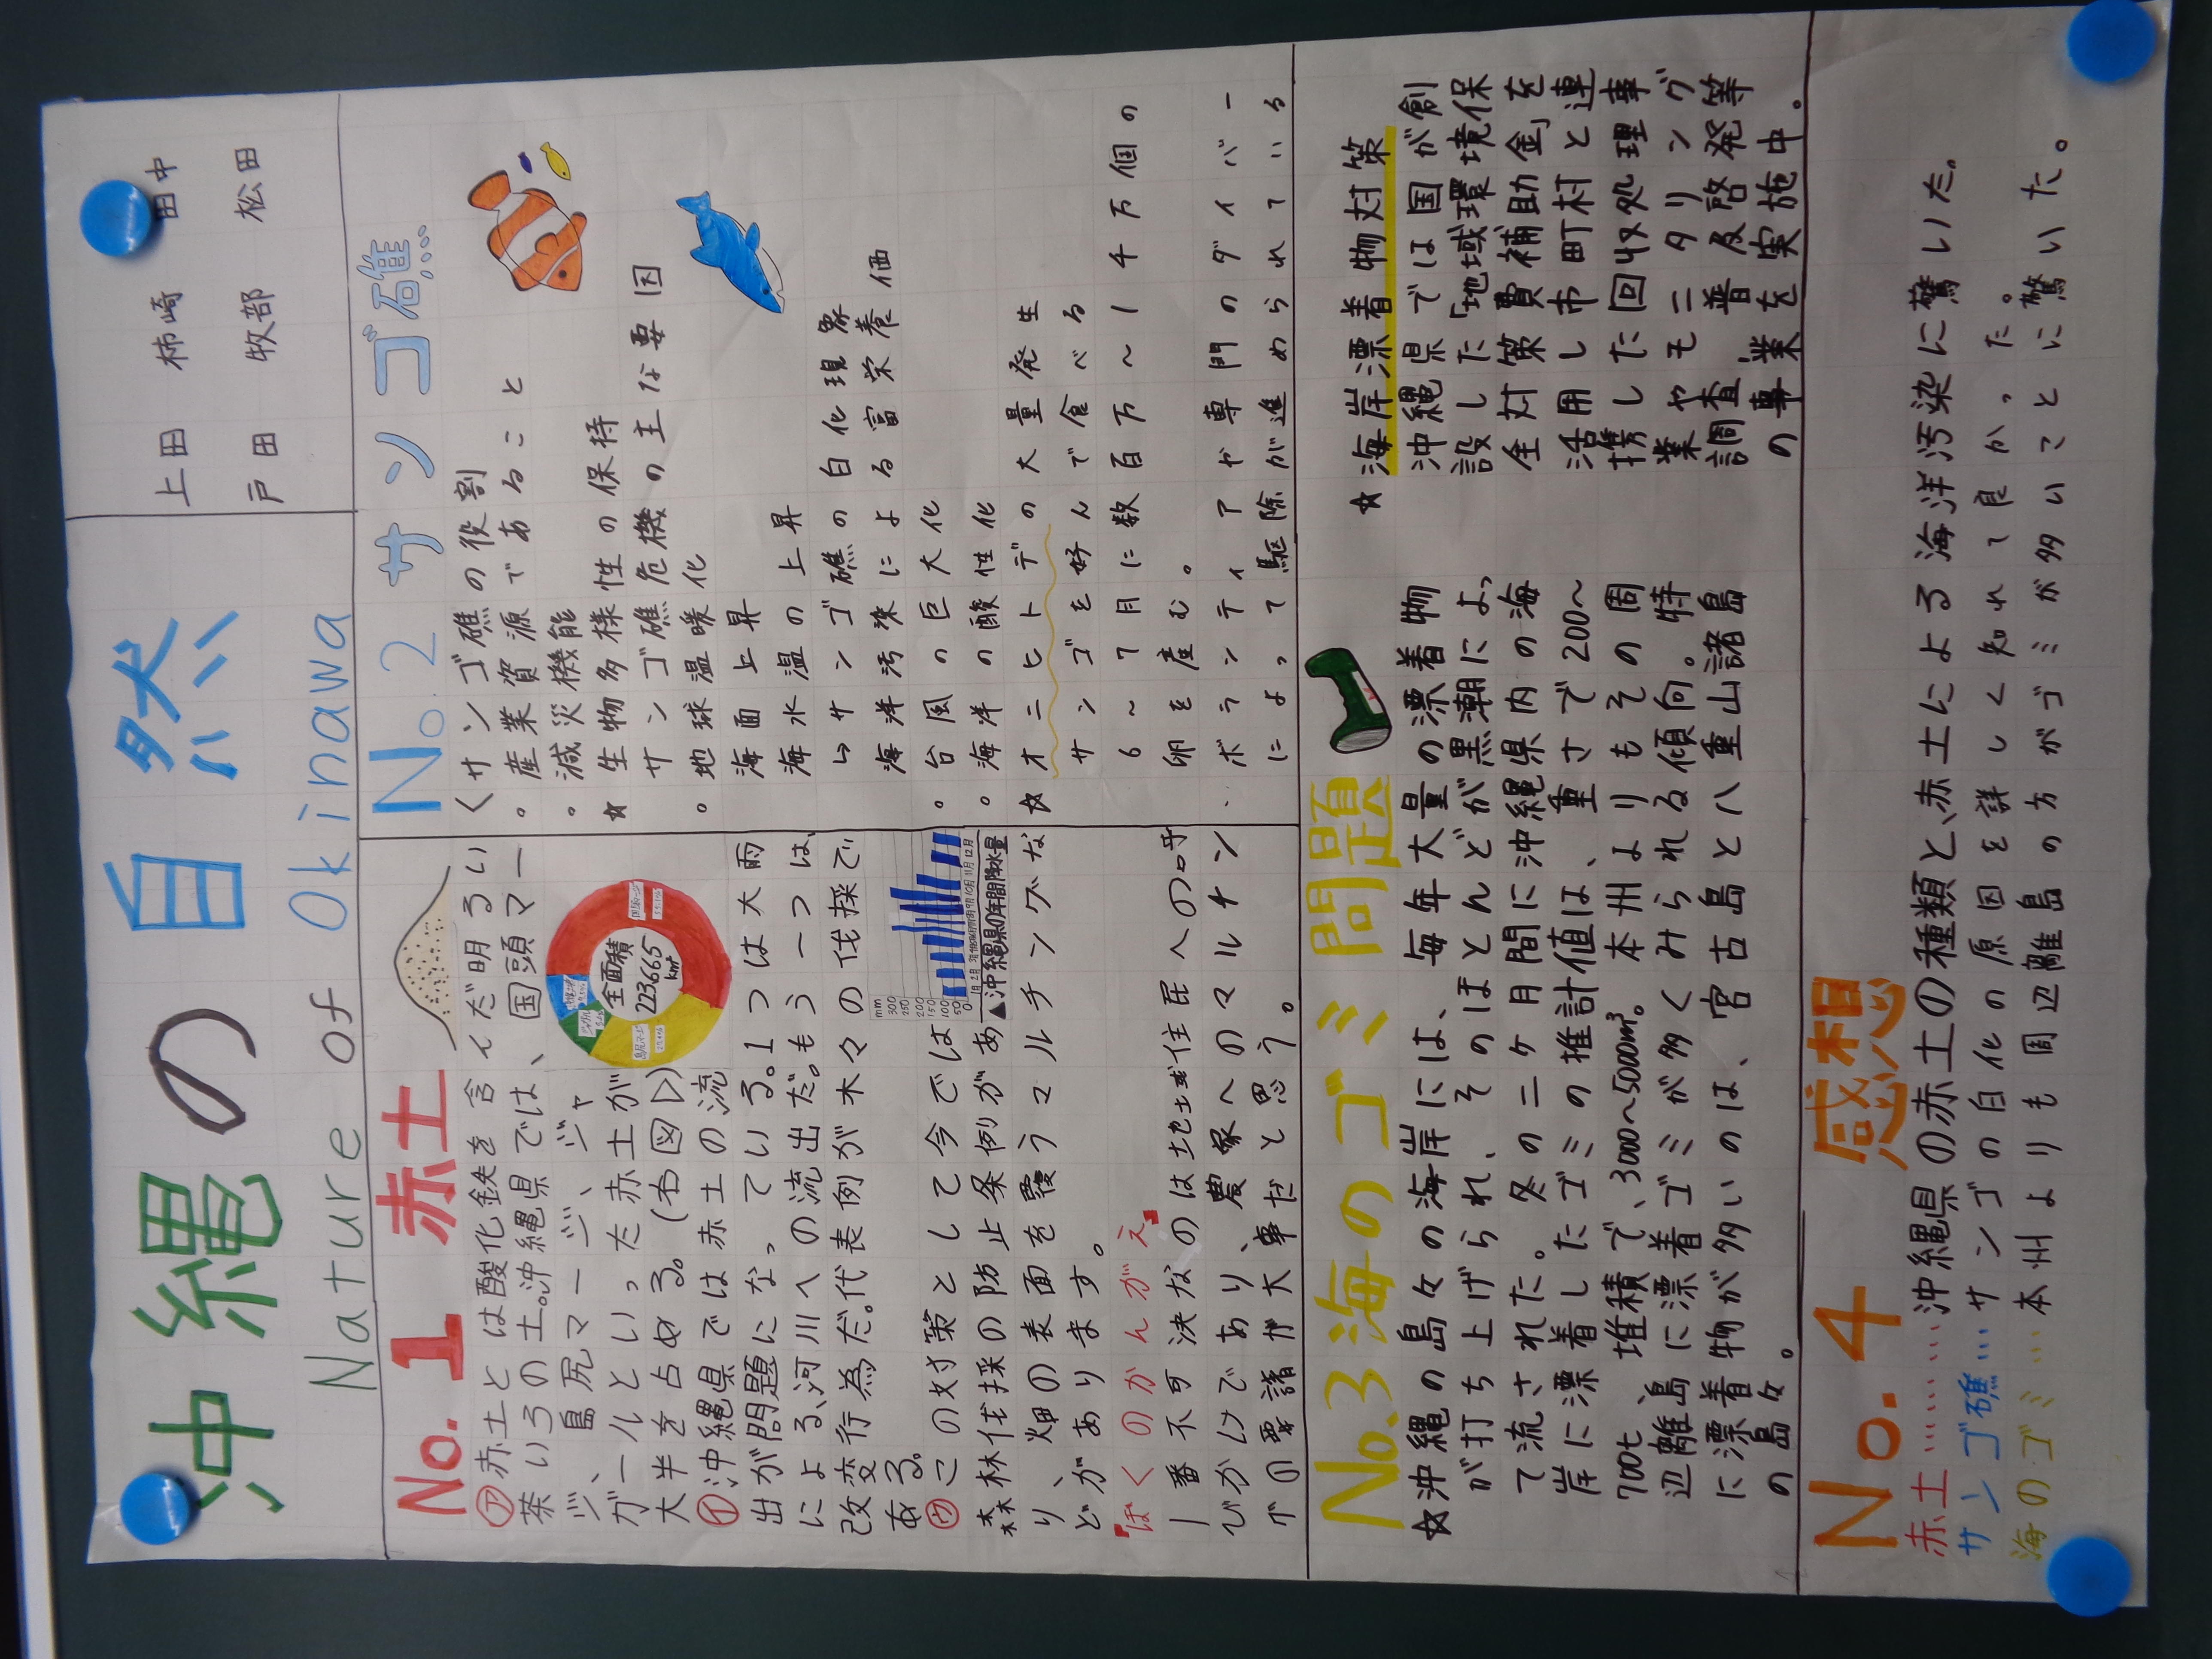 沖縄の自然
Nature of Okinawa
上田 柿崎 田中
戸田 牧部 松田
No.1 赤土
㋐赤土とは酸化鉄を含んだ明るい
茶いろの土。沖縄県では、国頭マー
ジ、島尻マージ、ジャ
ガールといった赤土が
大半を占める。(右図▷)
㋑沖縄県では赤土の流
出が問題になっている。1つは大雨
による、河川への流出だ。もう一つは、
改変行為だ。代表例が木々の伐採で
ある。
㋒この対策として今では
森林伐採の防止条例があ
り、畑の表面を覆うマルチングな
どがあります。
全面積
223665
km²
mm
300
250
200
150
100
50
0
1月 2月
9月 10月 11月 12月
▲沖縄県の年間降水量
『ぼくのかんがえ』
一番不可決なのは地域住民への呼
びかけであり、農家へのマルチン
グの要請が大事だと思う。
No.2 サンゴ礁
〈サンゴ礁の役割
。産業資源であること
。減災機能
生物多様性の保持
☆サンゴ礁危機の主な要因
。地球温暖化
海面上昇
海水温の上昇
↳サンゴ礁の白化現象
海洋汚染による富栄養価
。台風の巨大化
。海洋の酸性化
☆オニヒトデの大量発生
サンゴを好んで食べる
6～7月に数百万～1千万個の
卵を産む。
ボランティアや専門のダイバー
によって駆除が進められている
No.3 海のゴミ問題
☆沖縄の島々の海岸には、毎年大量の漂着物
が打ち上げられ、そのほとんどが黒潮によっ
て流された。冬の二ヶ月間に沖縄県内の海
岸に漂着したゴミの推計値は、重さで200～
700t、堆積で、3000～5000m³。本州よりもその周
辺離島に漂着ゴミが多くみられる傾向。特
に漂着物が多いのは、宮古島と八重山諸島
の島々。
☆海岸漂着物対策
沖縄県では国が創
設した「地域環境保
全対策費補助金」を
活用し市町村と連
携した回収処理事
業やモニタリング
調査、普及啓発等
の事業を実施中。
No.4 感想
赤土……… 沖縄県の赤土の種類と、赤土による海洋汚染に驚いた。
サンゴ礁… サンゴの白化の原因を詳しく知れて良かった。
海のゴミ… 本州よりも周辺離島の方がゴミが多いことに驚いた。